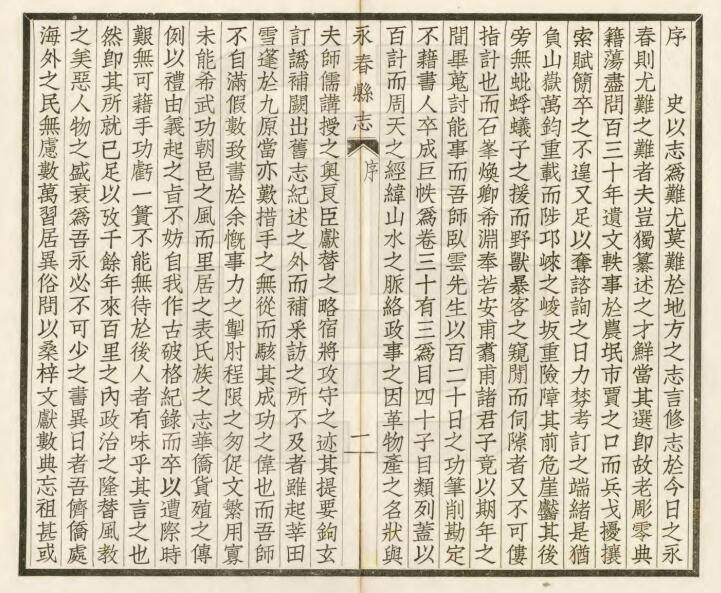 序　史以志爲難尤莫難於地方之志言修志於今日之永
春則尤難之難者夫豈獨纂述之才鮮當其選卽故老彫零典
籍蕩盡問百三十年遺文軼事於農氓市賈之口而兵戈擾攘
索賦簡卒之不遑又足以奪諮詢之日力棼考訂之端緒是猶
負山嶽萬鈞重載而陟邛崍之峻坂重險障其前危崖齾其後
旁無蚍蜉蟻子之援而野獸暴客之窺閒而伺隙者又不可僂
指計也而石峯煥卿希淵奉若安甫翥甫諸君子竟以期年之
間畢蒐討能事而吾師臥雲先生以百二十日之功筆削勘定
不藉書人卒成巨帙爲卷三十有三爲目四十子目類列蓋以
百計而周天之經緯山水之脈絡政事之因革物產之名狀與
永春縣志
序
一
夫師儒講授之奧良臣獻替之略宿將攻守之迹其提要鉤玄
訂譌補闕出舊志紀述之外而補采訪之所不及者雖起莘田
雪蓬於九原當亦歎措手之無從而駭其成功之偉也而吾師
不自滿假數致書於余慨事力之掣肘程限之匆促文繁用寡
未能希武功朝邑之風而里居之表氏族之志華僑貨殖之傳
例以禮由義起之旨不妨自我作古破格紀錄而卒以遭際時
艱無可藉手功虧一簣不能無待於後人者有味乎其言之也
然卽其所就已足以攷千餘年來百里之內政治之隆替風教
之美惡人物之盛衰爲吾永必不可少之書異日者吾儕僑處
海外之民無慮數萬習居異俗問以桑梓文獻數典忘祖甚或